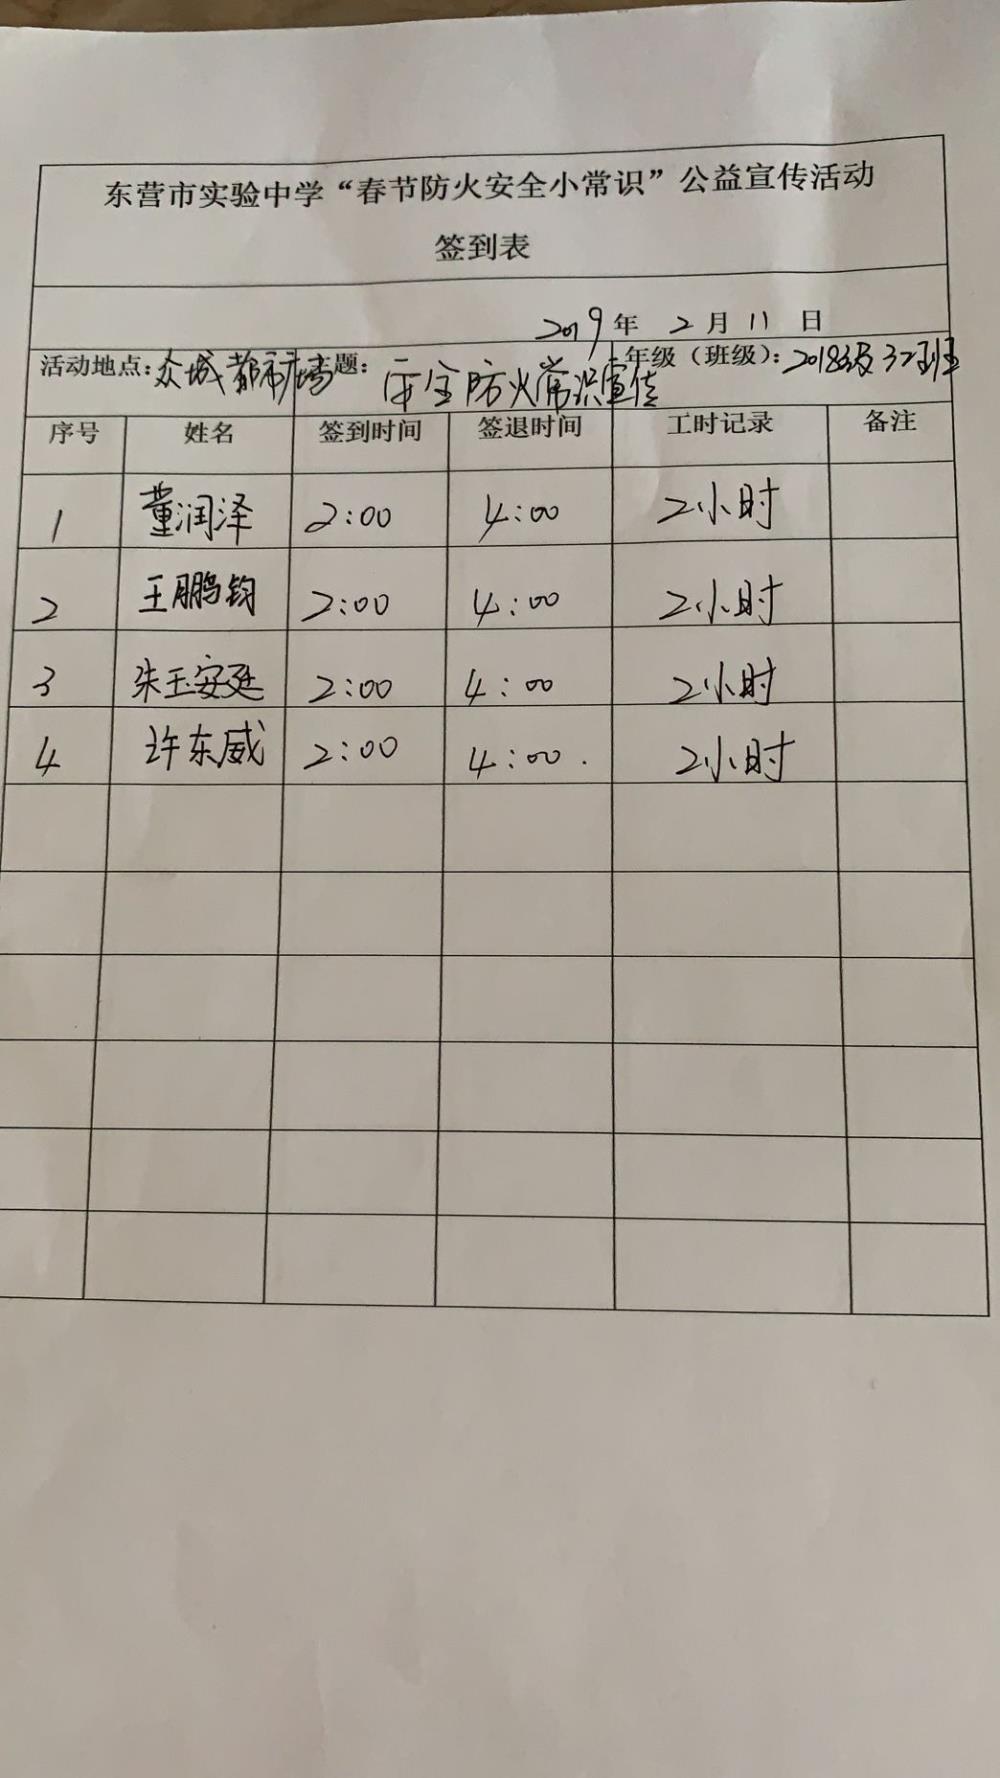 东营市实验中学“春节防火安全小常识”公益宣传活动
签到表
2019年 2月11日
活动地点：众城都市广场 主题：安全防火常识宣传 年级（班级）：2018级37班
序号 姓名 签到时间 签退时间 工时记录 备注
1 董润泽 2:00 4:00 2小时
2 王鹏钧 2:00 4:00 2小时
3 朱玉安廷 2:00 4:00 2小时
4 许东威 2:00 4:00. 2小时